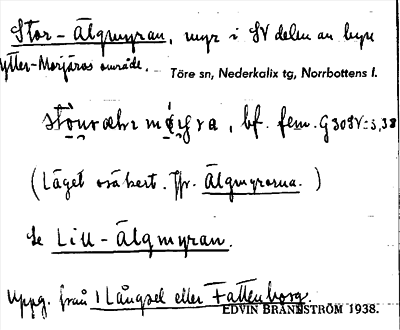 Stor-Älgmyran, myr i SV delen av byn
Ytter-Morjärvs område.
Töre sn, Nederkalix tg, Norrbottens l.
bf. fem. G30SV:5,38
(Läget osäkert. Jfr. Älgmyrorna.)
Se Lill-Älgmyran.
Uppg. från 1 Långsel eller Fattenborg.
EDVIN BRÄNNSTRÖM 1938.